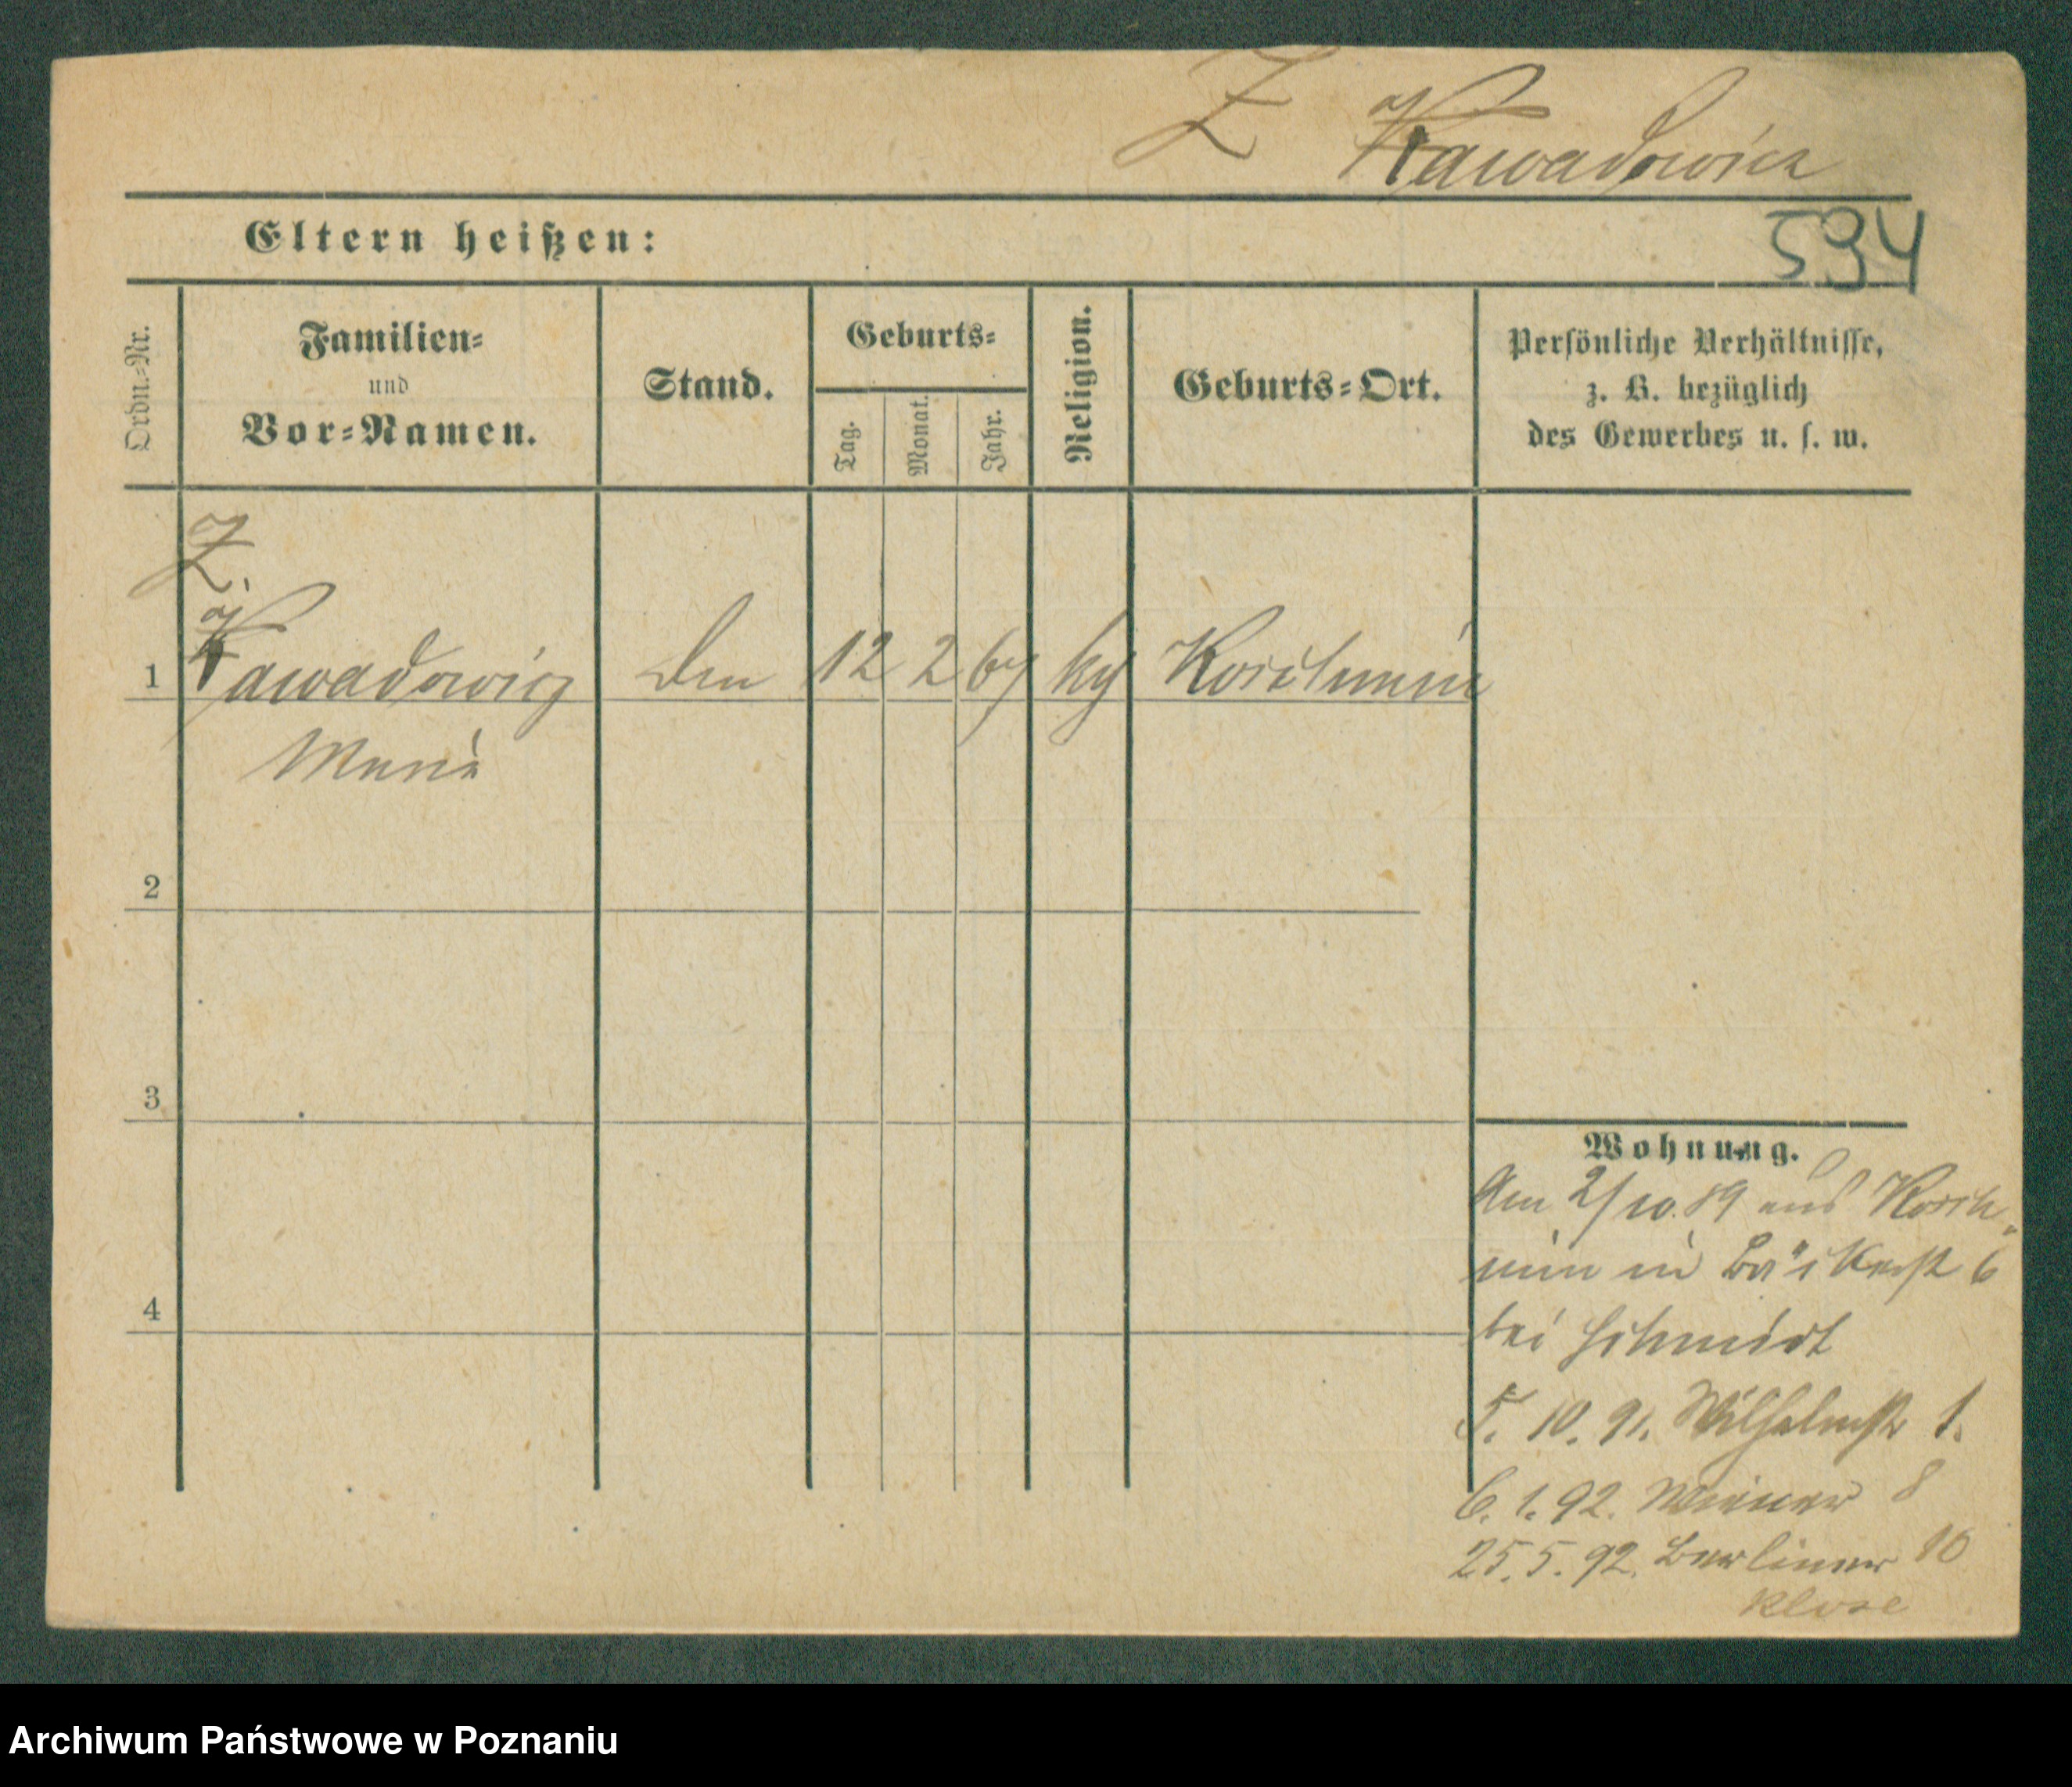 Z Kawadowicz
Eltern heißen:
594
Ordn.-Nr.
Familien-
und
Vor-Namen.
Stand.
Geburts-
Tag.
Monat.
Jahr.
Religion.
Geburts-Ort.
Persönliche Verhältnisse,
z. B. bezüglich
des Gewerbes u. s. w.
Z.
1 Kawadowicz 12 2 67 Koschmin
Marie
2
3
4
Wohnung.
Am 2/10.89 aus Kosch-
min in Bäckerst 6
bei Schmidt
5. 10. 91. Wilhelmstr 1.
6. 1. 92. Wiener 8
25. 5. 92. Berliner 10
Klose
Archiwum Państwowe w Poznaniu